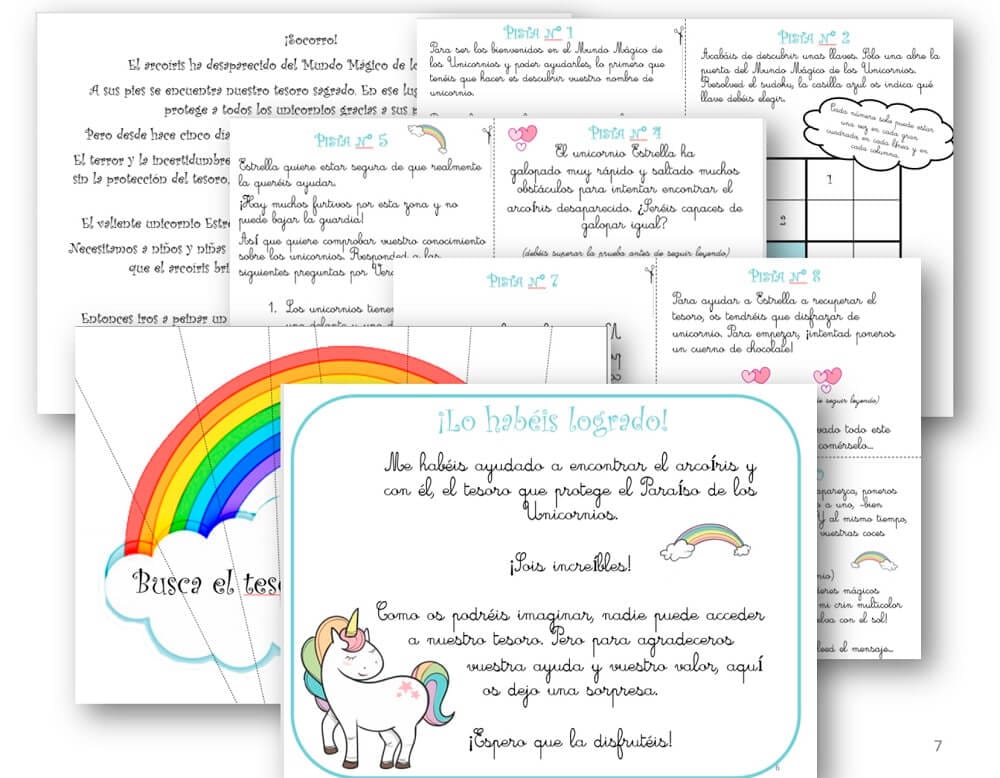 ¡Socorro!
El arcoíris ha desaparecido del Mundo Mágico de
A sus pies se encuentra nuestro tesoro sagrado. En ese
protege a todos los unicornios gracias a sus
Pero desde hace cinco
El terror y la incertidumbre
sin la protección del tesoro.
El valiente unicornio
Necesitamos a niños y niñas
que el arcoíris
Entonces iros a peinar un
PISTA Nº 1
Para ser los bienvenidos en el Mundo Mágico de
los Unicornios y poder ayudarles, lo primero que
tenéis que hacer es descubrir vuestro nombre de
unicornio.
PISTA Nº 2
Acabáis de descubrir unas llaves. Sólo una abre la
puerta del Mundo Mágico de los Unicornios.
Resolved el sudoku, la casilla azul os indica qué
llave debéis elegir.
Cada número solo puede estar
una vez en cada gran
cuadrado, en cada línea y en
cada columna.
1
2
PISTA Nº 5
Estrella quiere estar segura de que realmente
la queréis ayudar.
¡Hay muchos furtivos por esta zona y no
puede bajar la guardia!
Así que quiere comprobar vuestro conocimiento
sobre los unicornios. Responded a las
siguientes preguntas por
1. Los unicornios tienen
PISTA Nº 4
El unicornio Estrella ha
galopado muy rápido y saltado muchos
obstáculos para intentar encontrar el
arcoíris desaparecido. ¿Seréis capaces de
galopar igual?
(debéis superar la prueba antes de seguir leyendo)
PISTA Nº 7
PISTA Nº 8
Para ayudar a Estrella a recuperar el
tesoro, os tendréis que disfrazar de
unicornio. Para empezar, ¡intentad poneros
un cuerno de chocolate!
de seguir leyendo)
todo este
comérselo...
poneros
a uno, -bien
Y al mismo tiempo,
vuestras coces
mágicos
mi crin multicolor
con el sol!
el mensaje...
Busca el
¡Lo habéis logrado!
Me habéis ayudado a encontrar el arcoíris y
con él, el tesoro que protege el Paraíso de los
Unicornios.
¡Sois increíbles!
Como os podréis imaginar, nadie puede acceder
a nuestro tesoro. Pero para agradeceros
vuestra ayuda y vuestro valor, aquí
os dejo una sorpresa.
¡Espero que la disfrutéis!
6
7